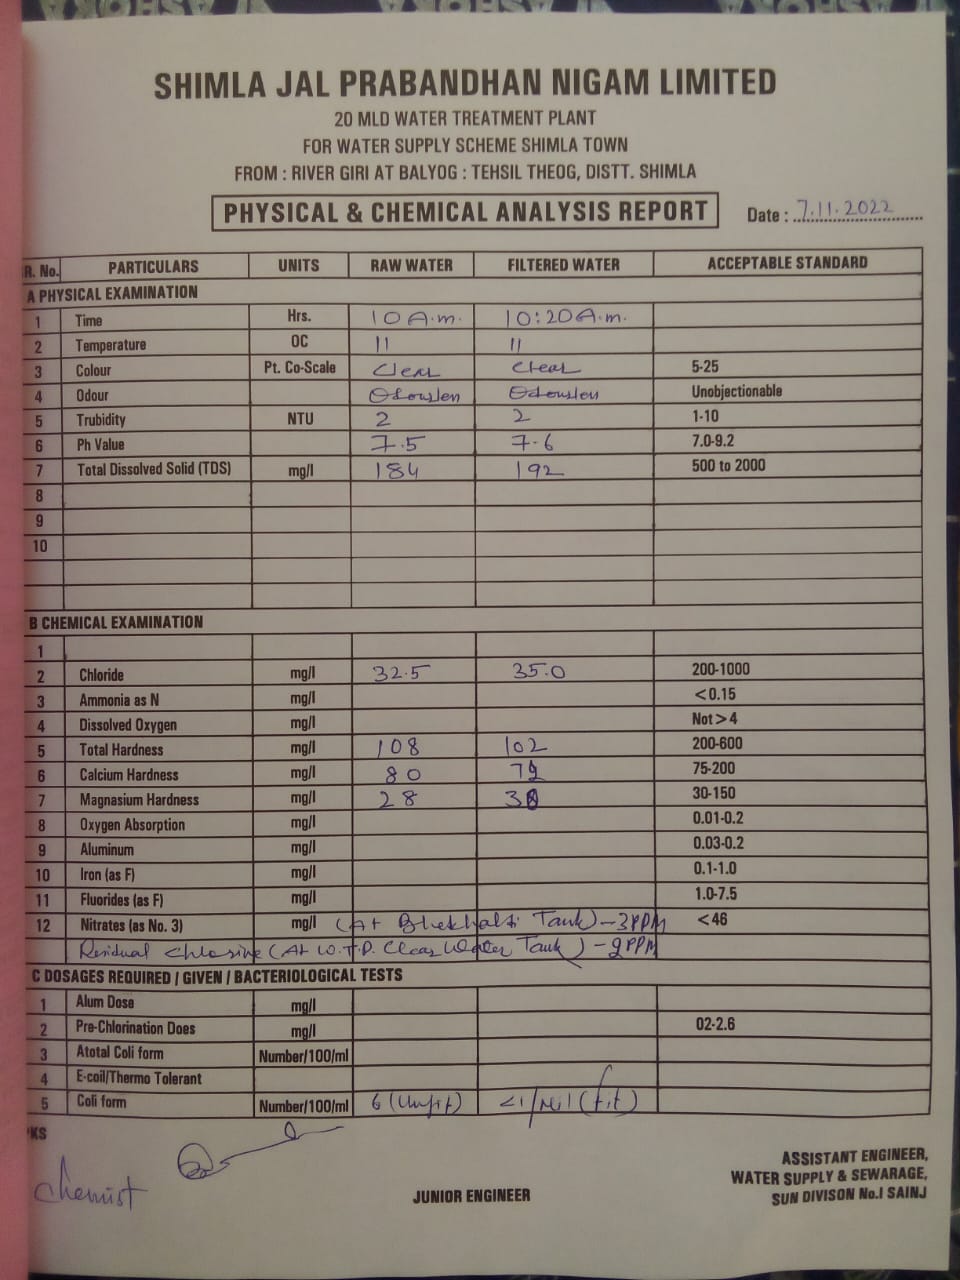 SHIMLA JAL PRABANDHAN NIGAM LIMITED
20 MLD WATER TREATMENT PLANT
FOR WATER SUPPLY SCHEME SHIMLA TOWN
FROM : RIVER GIRI AT BALYOG : TEHSIL THEOG, DISTT. SHIMLA
PHYSICAL & CHEMICAL ANALYSIS REPORT Date : 7.11.2022
R. No. PARTICULARS UNITS RAW WATER FILTERED WATER ACCEPTABLE STANDARD
A PHYSICAL EXAMINATION
1 Time Hrs. 10 A.m. 10:20 A.m.
2 Temperature OC 11 11
3 Colour Pt. Co-Scale Clear Clear 5-25
4 Odour Unobjectionable
5 Trubidity NTU 2 2 1-10
6 Ph Value 7.5 7.6 7.0-9.2
7 Total Dissolved Solid (TDS) mg/l 184 192 500 to 2000
8
9
10
B CHEMICAL EXAMINATION
1
2 Chloride mg/l 32.5 35.0 200-1000
3 Ammonia as N mg/l <0.15
4 Dissolved Oxygen mg/l Not > 4
5 Total Hardness mg/l 108 102 200-600
6 Calcium Hardness mg/l 80 75-200
7 Magnasium Hardness mg/l 28 30-150
8 Oxygen Absorption mg/l 0.01-0.2
9 Aluminum mg/l 0.03-0.2
10 Iron (as F) mg/l 0.1-1.0
11 Fluorides (as F) mg/l 1.0-7.5
12 Nitrates (as No. 3) mg/l (At Tank) - 3PPM <46
Residual Chlorine (At W.T.P. Clear Water Tank) - 2PPM
C DOSAGES REQUIRED / GIVEN / BACTERIOLOGICAL TESTS
1 Alum Dose mg/l
2 Pre-Chlorination Does mg/l 02-2.6
3 Atotal Coli form Number/100/ml
4 E-coil/Thermo Tolerant
5 Coli form Number/100/ml 6 (Unfit) <1/Nil (fit)
KS
Chemist
JUNIOR ENGINEER
ASSISTANT ENGINEER,
WATER SUPPLY & SEWARAGE,
SUN DIVISON No.I SAINJ